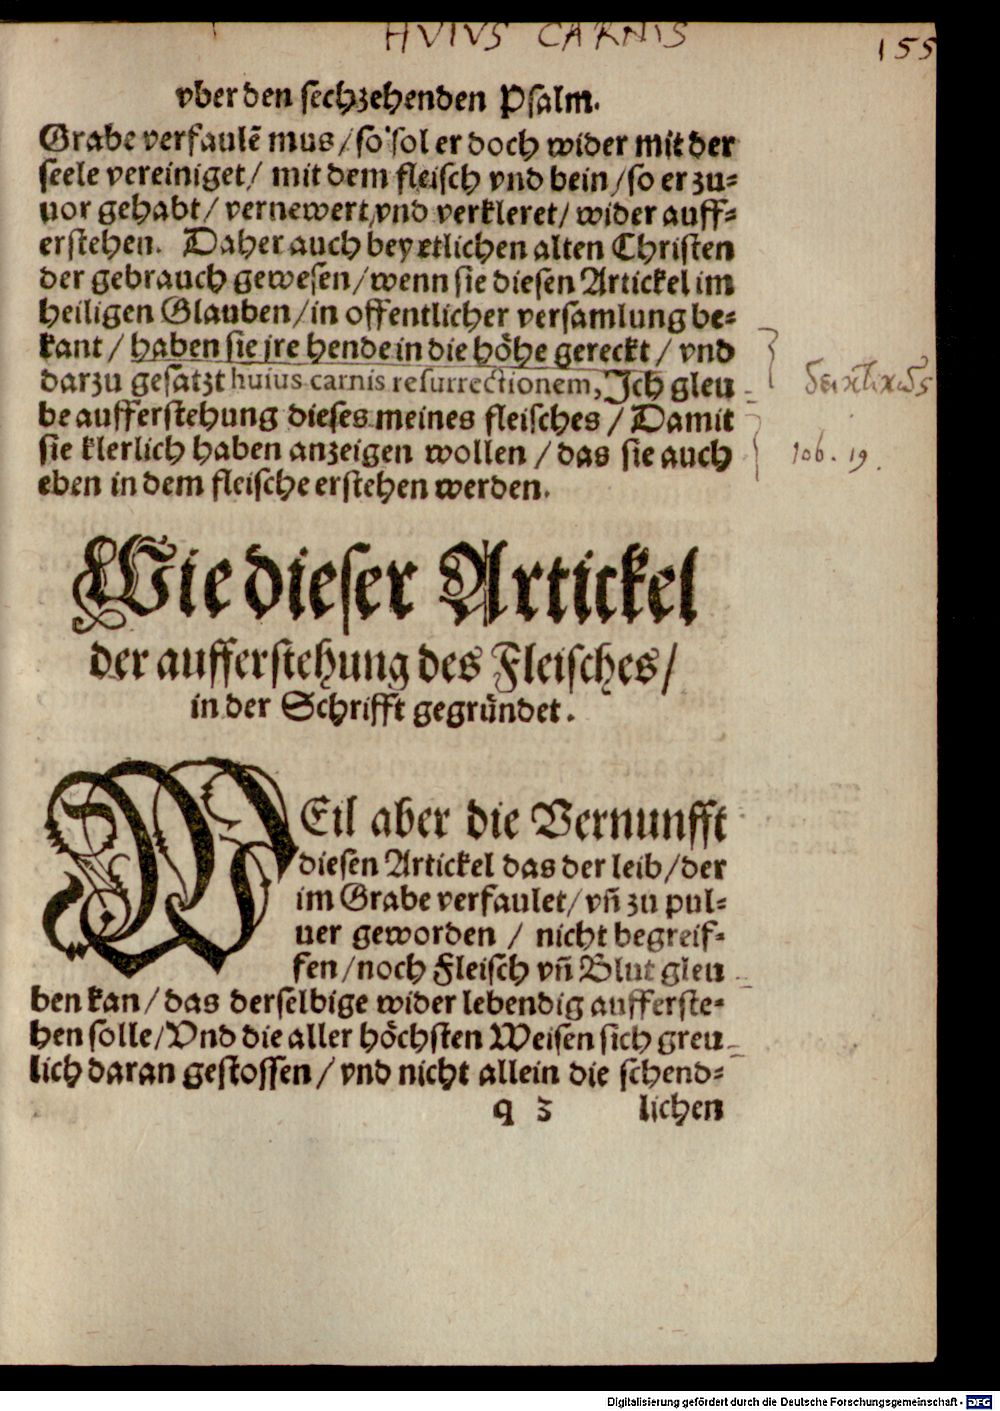 HVIVS CARNIS
155
vber den sechzehenden Psalm.
Grabe verfaulē mus / so sol er doch wider mit der
seele vereiniget / mit dem fleisch vnd bein / so er zu⸗
uor gehabt / vernewert vnd verkleret / wider auff⸗
erstehen. Daher auch bey etlichen alten Christen
der gebrauch gewesen / wenn sie diesen Artickel im
heiligen Glauben / in offentlicher versamlung be⸗
kant / haben sie jre hende in die höhe gereckt / vnd
darzu gesatzt huius carnis resurrectionem, Ich gleu
δεικτικῶς
be aufferstehung dieses meines fleisches / Damit
sie klerlich haben anzeigen wollen / das sie auch
Iob. 19.
eben in dem fleische erstehen werden.
Wie dieser Artickel
der aufferstehung des Fleisches /
in der Schrifft gegründet.
WEil aber die Vernunfft
diesen Artickel das der leib / der
im Grabe verfaulet / vñ zu pul⸗
uer geworden / nicht begreif⸗
fen / noch Fleisch vñ Blut gleu
ben kan / das derselbige wider lebendig aufferste⸗
hen solle / Vnd die aller höchsten Weisen sich greu
lich daran gestossen / vnd nicht allein die schend⸗
q 3 lichen
Digitalisierung gefördert durch die Deutsche Forschungsgemeinschaft - DFG